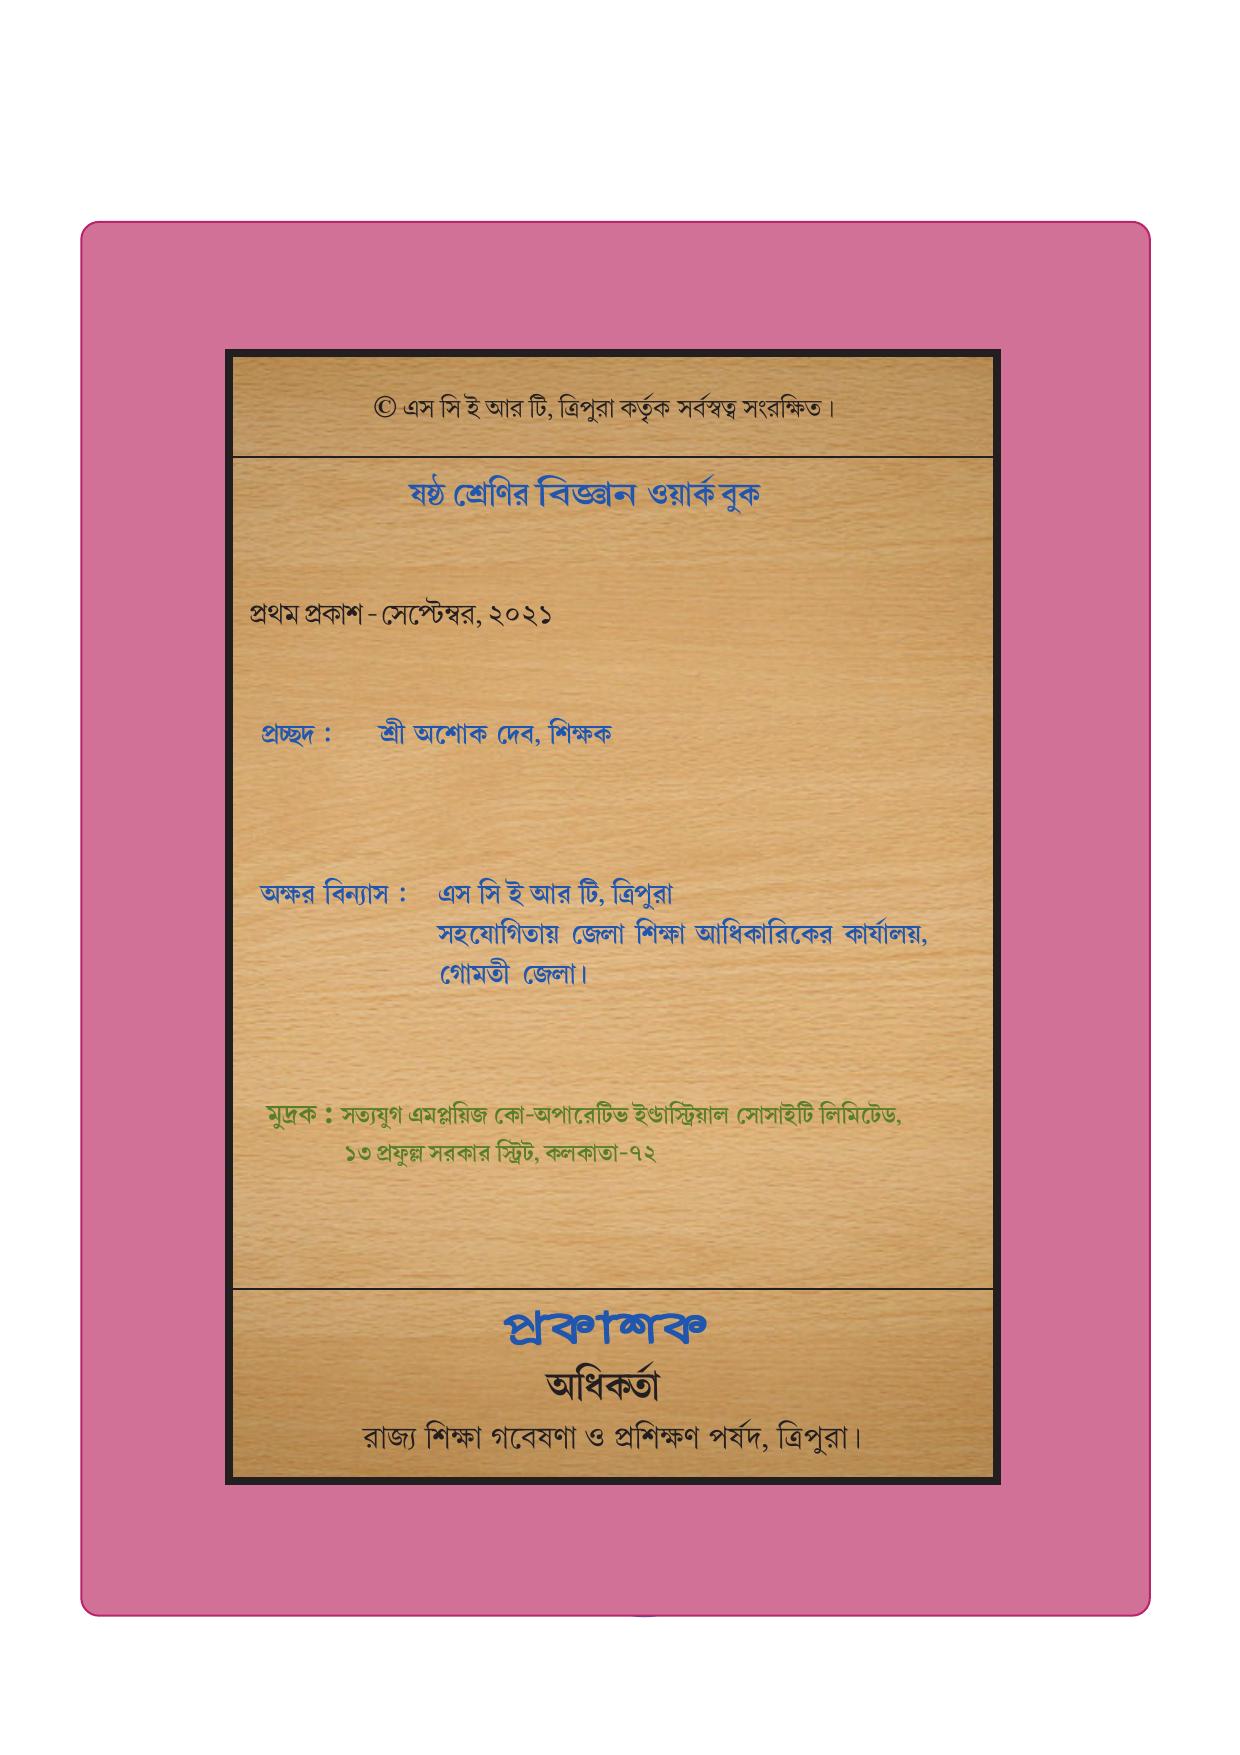 © এস সি ই আর টি, ত্রিপুরা কর্তৃক সর্বস্বত্ব সংরক্ষিত।
ষষ্ঠ শ্রেণির বিজ্ঞান ওয়ার্ক বুক
প্রথম প্রকাশ - সেপ্টেম্বর, ২০২১
প্রচ্ছদ : শ্রী অশোক দেব, শিক্ষক
অক্ষর বিন্যাস : এস সি ই আর টি, ত্রিপুরা
সহযোগিতায় জেলা শিক্ষা আধিকারিকের কার্যালয়,
গোমতী জেলা।
মুদ্রক : সত্যযুগ এমপ্লয়িজ কো-অপারেটিভ ইণ্ডাস্ট্রিয়াল সোসাইটি লিমিটেড,
১৩ প্রফুল্ল সরকার স্ট্রিট, কলকাতা-৭২
প্রকাশক
অধিকর্তা
রাজ্য শিক্ষা গবেষণা ও প্রশিক্ষণ পর্ষদ, ত্রিপুরা।